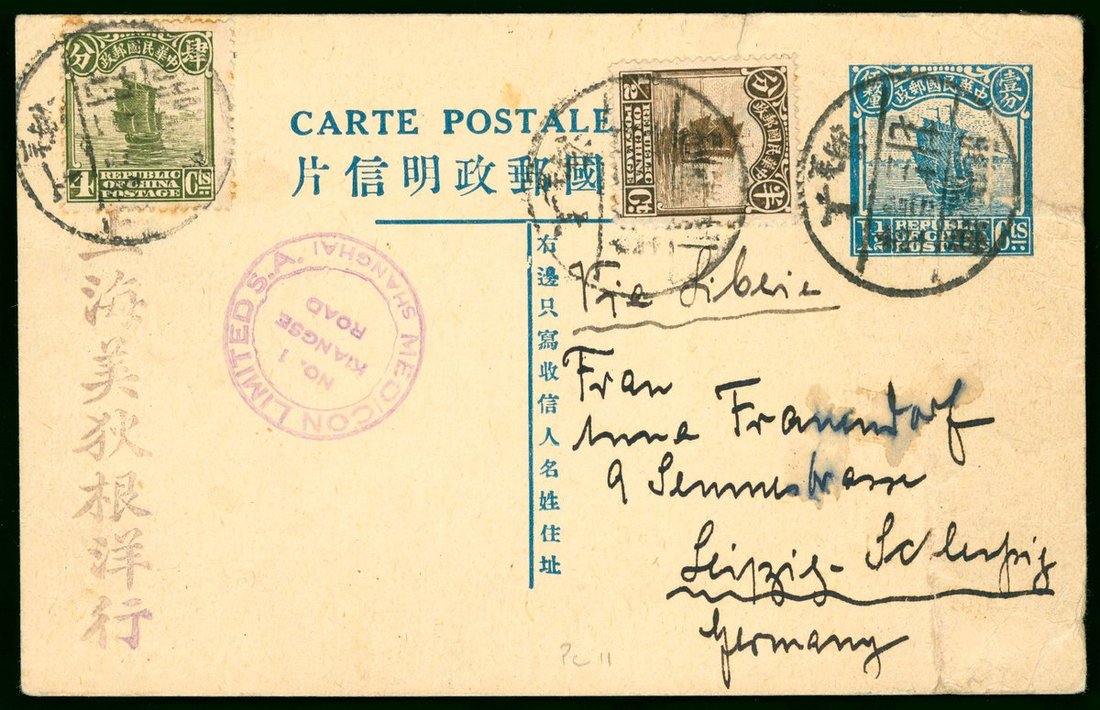 分 肆
中華民國郵政
4 REPUBLIC OF CHINA POSTAGE Cts
CARTE POSTALE
片信明政郵國
分 半
中華民國郵政
1/2 REPUBLIC OF CHINA POSTAGE Ct.
釐伍 分壹
政郵國民華中
1½ REPUBLIC OF CHINA POSTAGE Cts
右邊只寫收信人名姓住址
MEDICON LIMITED S.A. SHANGHAI
NO. 1
KIANGSE
ROAD
上海美狄根洋行
Via Siberie
Frau
Anna Frauendorf
9 Sennestrasse
Leipzig-Schleussig
Germany
Pc 11